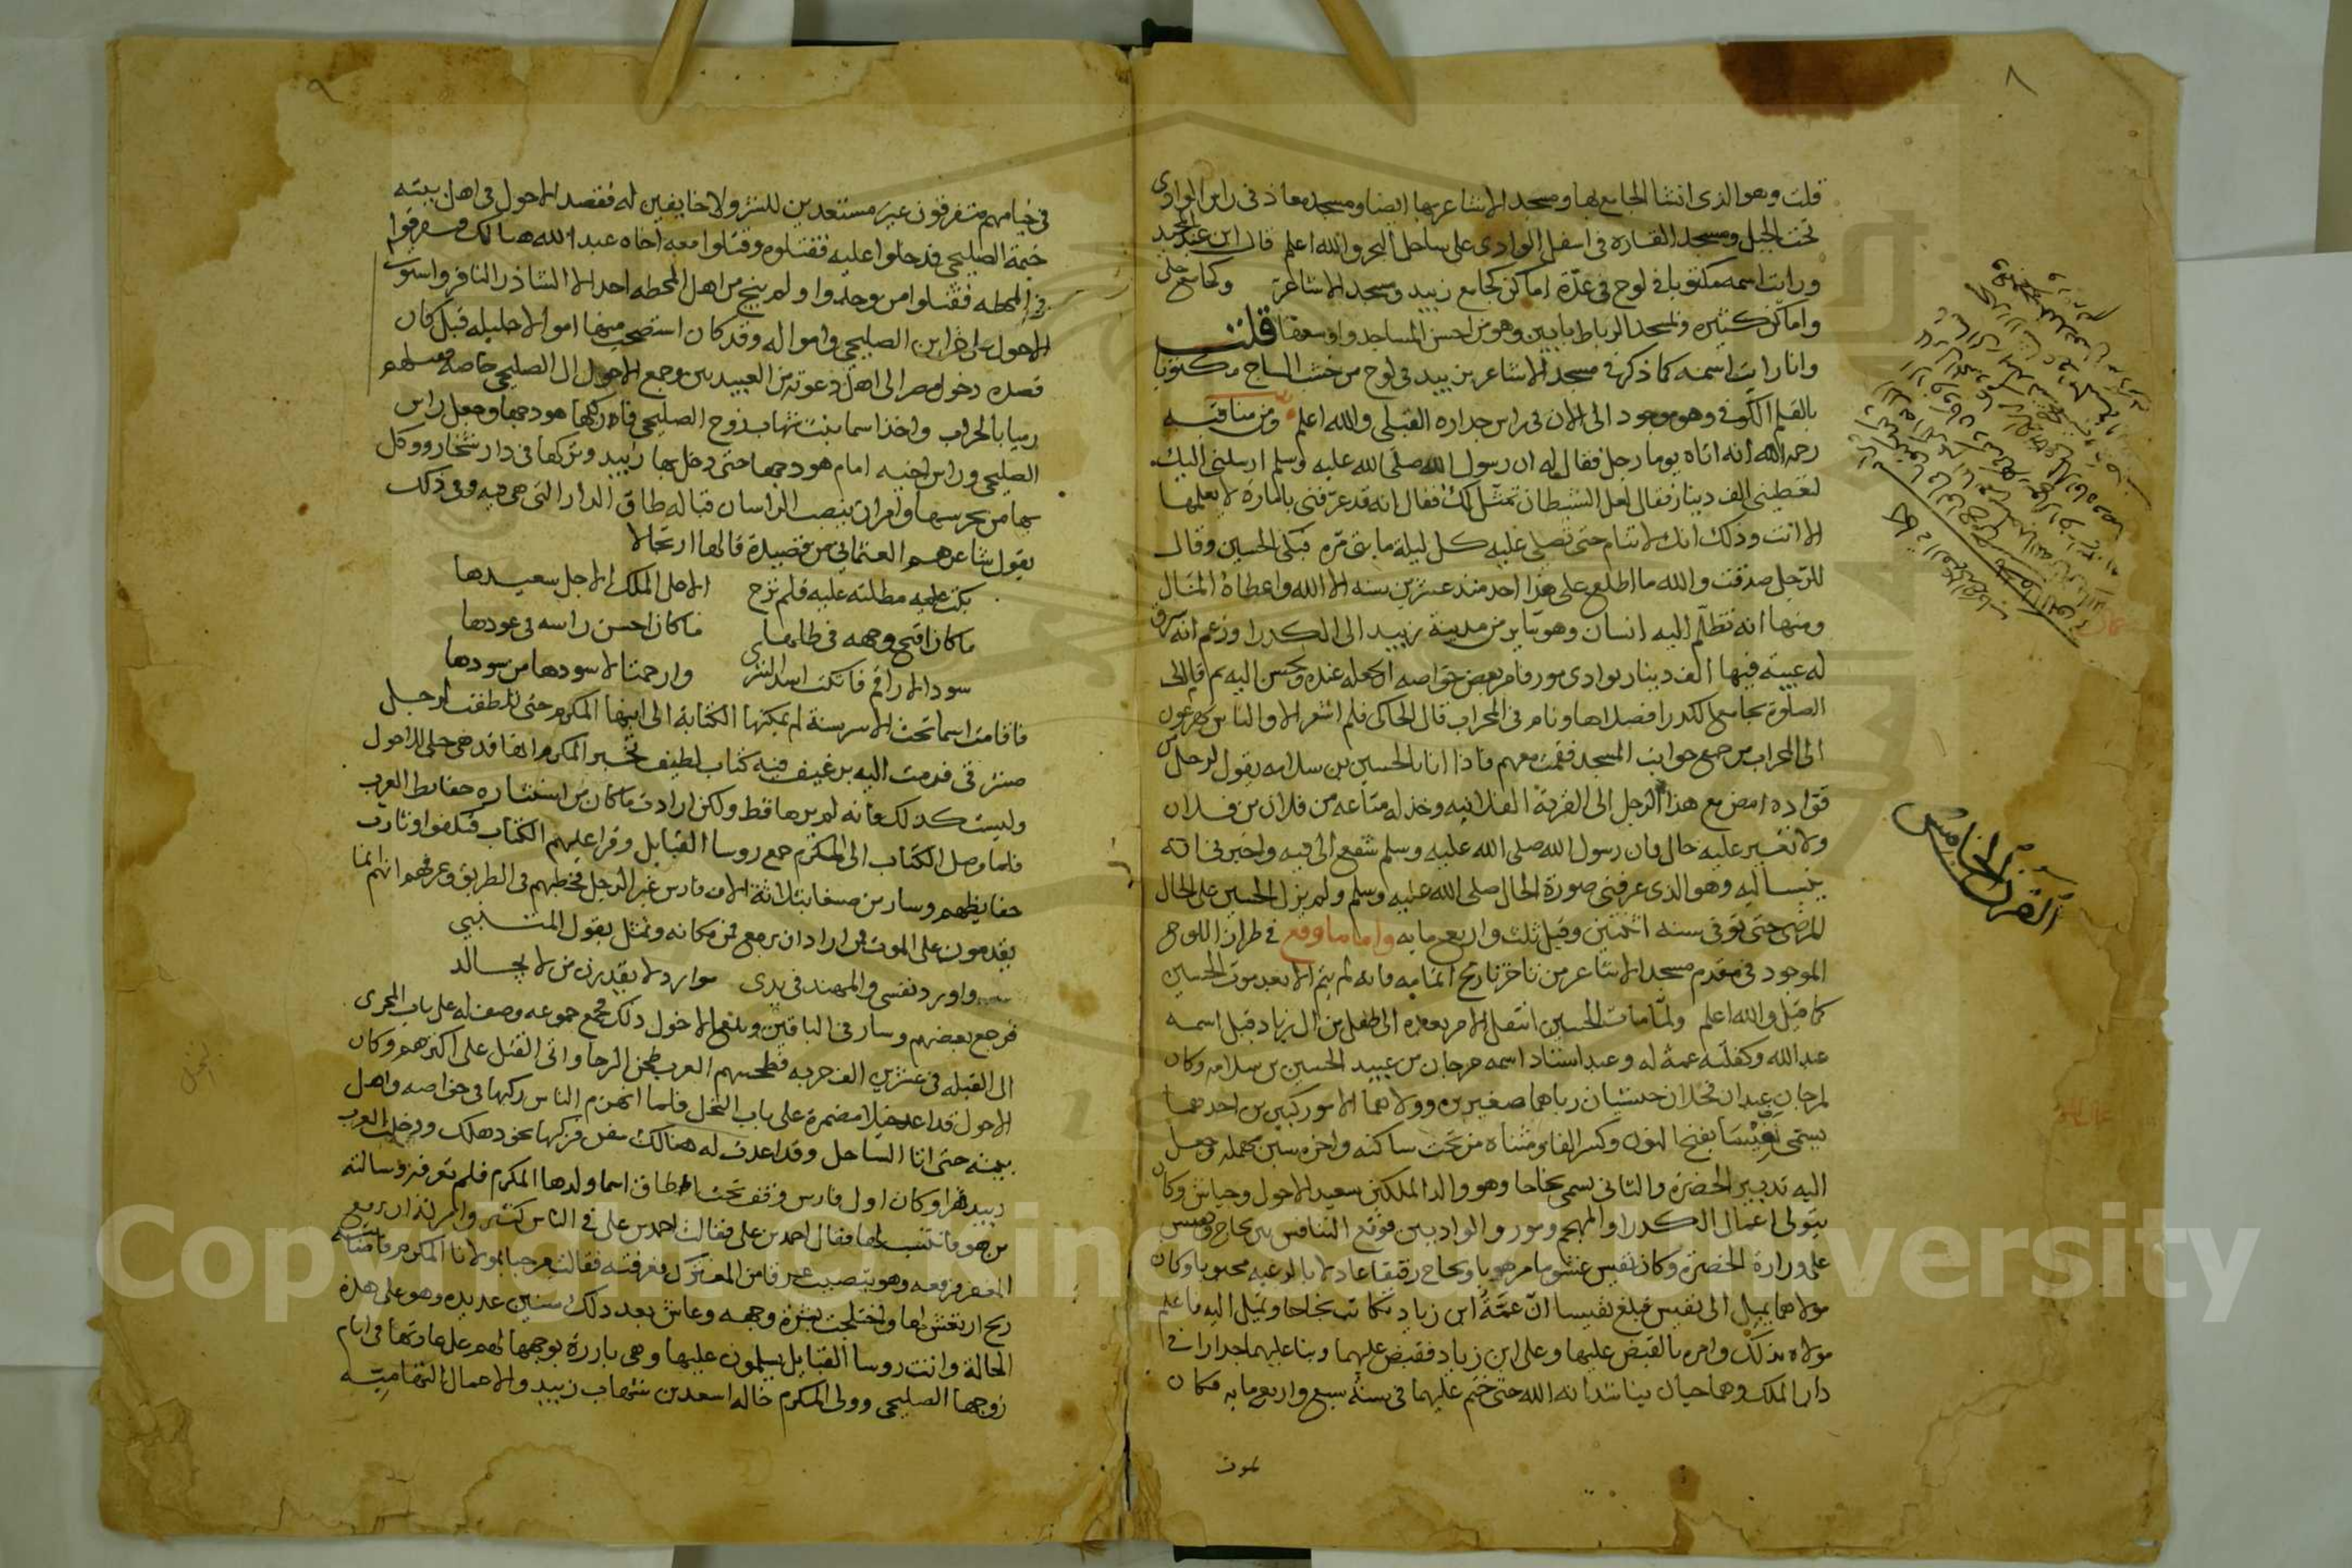 ٨
قلت وهو الذى انشا الجامع بها ومسجد الاشاعر بها ايضا ومسجد معاذ فى راس الوادى
تحت الجبل ومسجد القاره فى اسفل الوادى على ساحل البحر والله اعلم قال ابن عبد المجيد
ورايت اسمه مكتوبا فى لوح فى عدّة اماكن كجامع زبيد ومسجد الاشاعر وكجامع حلى
واماكن كثيره ومسجد الرباط بابين وهو من احسن المساجد واوسعها قلت
وانا رايت اسمه كما ذكر فى مسجد الاشاعر بزبيد فى لوح من خشب الساج مكتوبا
بالقلم الكوفى وهو موجود الى الان فى راس جداره القبلى والله اعلم ومن مناقبه
رحمه الله انه اتاه يوما رجل فقال له ان رسول الله صلى الله عليه وسلم ارسلنى اليك
لتعطينى الف دينار فقال لعل الشيطان تمثّل لك فقال انه قد عرّفنى بامارة لا يعلمها
الا انت وذلك انك لا تنام حتى تصلى عليه كل ليلة مايتى مرّه فبكى الحسين وقال
للرجل صدقت والله ما اطلع على هذا احد منذ عشرين سنه الا الله واعطاه المثال
ومنها انه تظلّم اليه انسان وهو ساير من مدينة زبيد الى الكدرا وزعم انه سرق
له عيبة فيها الف دينار بوادى مور فامر بعض خواصه ان يجعله عنده ويحسن اليه ثم قام الى
الصلوة بجامع الكدرا فصلاها ونام فى المحراب قال الحاكى فلم اشعر الا والناس يهرعون
الى المحراب من جميع جوانب المسجد فقمت معهم فاذا انا بالحسين بن سلامه يقول لرجل من
قواده امض مع هذا الرجل الى القرية الفلانيه وخذ له متاعه من فلان بن فلان
ولا تغير عليه حال فان رسول الله صلى الله عليه وسلم شفع الى فيه واخبرنى انه
ينسب اليه وهو الذى عرفنى صورة الحال صلى الله عليه وسلم ولم يزل الحسين على الحال
المرضى حتى توفى سنه اثنتين وقيل ثلث واربعمايه واما ما وقع فى طراز اللوح
الموجود فى مقدم مسجد الاشاعر من تاخر تاريخ اتمامه فانه لم يتم الا بعد موت الحسين
كما قيل والله اعلم ولمّا مات الحسين انتقل الامر بعده الى طفل من ال زياد قيل اسمه
عبد الله وكفلته عمة له وعبد استاد اسمه مرجان من عبيد الحسين بن سلامه وكان
لمرجان عبدان فحلان حبشيان رباهما صغيرين وولاهما الامور كبيرين احدهما
يسمى نفيسا بفتح النون وكسر الفا ومثناه من تحت ساكنه واخره سين مهمله وجعل
اليه تدبير الحضرة والثانى يسمى نجاحا وهو والد الملكين سعيد الاحول وجياش وكان
يتولى اعمال الكدرا والمهجم ومور والواديين فوقع التنافس بين نجاح ونفيس
على وزارة الحضرة وكان نفيس غشوما مرهوبا ونجاح رفيقا عادلا بالرعيه محبوبا وكان
مولاهما يميل الى نفيس فبلغ نفيسا انّ عمّة ابن زياد تكاتب نجاحا وتميل اليه فاعلم
مولاه بذلك وامره بالقبض عليها وعلى ابن زياد فقبض عليهما وبنا عليهما جدارا فى
دار الملك وهما حيان يناشدانه الله حتى ختم عليهما فى سنة سبع واربعمايه فكان
القرن الخامس
٩
فى خيامهم متفرقون غير مستعدين للشر ولا خايفين له فقصد الاحول فى اهل بيته
خيمة الصليحى فدخلوا عليه فقتلوه وقتلوا معه اخاه عبد الله هنالك وتفرقوا
فى المحطه فقتلوا من وجدوا ولم ينج من اهل المحطه احد الا الشاذ النافر واستولى
الاحول على خزاين الصليحى وامواله وقد كان استصحب منها اموالا جليله قيل كان
قصده دخول مصر الى اهل دعوته من العبيديين ورجع الاحول ال الصليحى خاصه
رميا بالحراب واخذ اسما بنت شهاب زوج الصليحى فاركبها هودجها وجعل راس
الصليحى وراس اخيه امام هودجها حتى دخل بها زبيد وتركها فى دار شحار ووكل
بها من يحرسها وامر ان ينصب الراسان قباله طاق الدار التى هى فيه وفى ذلك
يقول شاعرهم العثمانى من قصيدة قالها ارتجالا
بكت مظلته عليه فلم ترح الا على الملك الاجل سعيدها
ما كان اقبح وجهه فى ظلها ما كان احسن راسه فى عودها
سود الاراقم قاتلت اسد الشرى وارحمتا لاسودها من سودها
فاقامت اسما تحت الاسر سنة لم يمكنها الكتابة الى ابنها المكرم حتى تلطفت لرجل
مشرقى فرمت اليه برغيف فيه كتاب لطيف تخبر المكرم انها قد حبلى للاحول
وليست كذلك فانه لم يرها قط ولكن ارادت ما كان من استشاره حفايظ العرب
فلما وصل الكتاب الى المكرم جمع روسا القبايل وقرا عليهم الكتاب فبكوا وثارت
حفايظهم وسار من صنعا بثلاثة الاف فارس غير الرجل فخطبهم فى الطريق وعرفهم انهم انما
يقدمون على الموت فمن اراد ان يرجع فمن مكانه وتمثل بقول المتنبى
واورد نفسى والمهند فى يدى موارد لا يصدرن من لا يجالد
فرجع بعضهم وسار فى الباقين وبلغ الاحول ذلك فجمع جموعه وصف له على باب المجرى
الى القبله فى عشرين الف حربه فطحنتهم العرب طحن الرحا واتى القتل على اكثرهم وكان
الاحول قد اعد خيلا مضمرة على باب النخل فلما انهزم الناس ركبها فى خواصه واهل
بيته حتى اتا الساحل وقد اعدت له هنالك سفن فركبها نحو دهلك ودخلت العرب
زبيد قهرا وكان اول فارس وقف تحت طاق اسما ولدها المكرم فلم تعرفه وسالته
من هو فانتسب لها فقال احمد بن على فقالت احمد بن على فى الناس كثير وامرته ان يرفع
المغفر فرفعه وهو يتصبب عرقا من المعترك فعرفته فقالت مرحبا بمولانا المكرم فاصابته
ريح ارتعش لها واختلجت بشرة وجهه وعاش بعد ذلك سنين عديده وهو على هذه
الحالة واتت روسا القبايل يسلمون عليها وهى بارزة بوجهها لهم على عادتها فى ايام
زوجها الصليحى وولى المكرم خاله اسعد بن شهاب زبيد والاعمال التهاميّه
Copyright © King Saud University